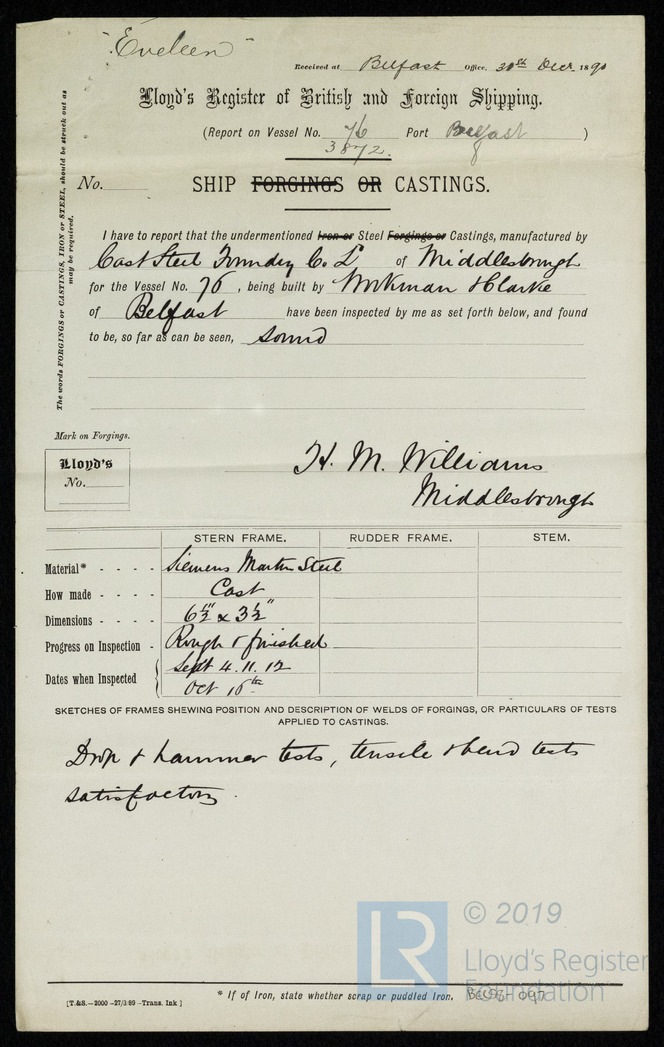 "Eveleen"
Received at Belfast Office, 30th Decr 1890
Lloyd's Register of British and Foreign Shipping.
(Report on Vessel No. 76 Port Belfast )
3872.
No.
SHIP FORGINGS OR CASTINGS.
The words FORGINGS or CASTINGS, IRON or STEEL, should be struck out as
may be required.
I have to report that the undermentioned Iron or Steel Forgings or Castings, manufactured by
Cast Steel Foundry Co. Ld of Middlesbrough
for the Vessel No. 76, being built by Workman & Clarke
of Belfast have been inspected by me as set forth below, and found
to be, so far as can be seen, sound
Mark on Forgings.
Lloyd's
No.
H. M. Williams
Middlesbrough
STERN FRAME. RUDDER FRAME. STEM.
Material* - - - - Siemens Martin Steel
How made - - - - Cast
Dimensions - - - - 6½" x 3½"
Progress on Inspection - Rough & finished
Dates when Inspected Sept 4. 11. 12
Oct 16th
SKETCHES OF FRAMES SHEWING POSITION AND DESCRIPTION OF WELDS OF FORGINGS, OR PARTICULARS OF TESTS
APPLIED TO CASTINGS.
Drop & hammer tests, tensile & bend tests
satisfactory.
LR
© 2019
Lloyd's Register
Foundation
* If of Iron, state whether scrap or puddled Iron.
[T.&S.—2000—27/3/89—Trans. Ink]